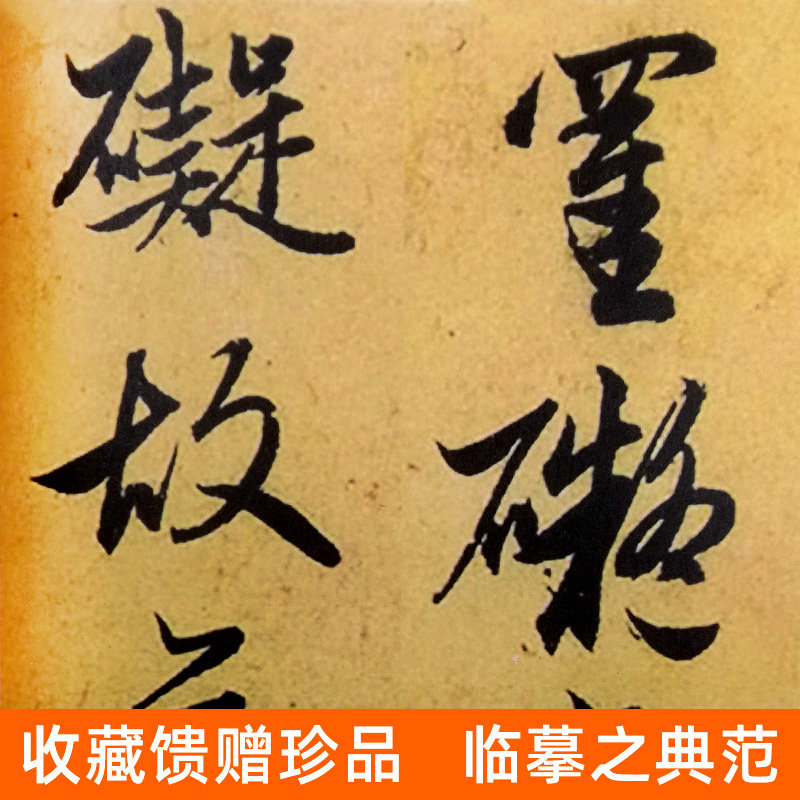 罣礙
礙故
收藏馈赠珍品 临摹之典范